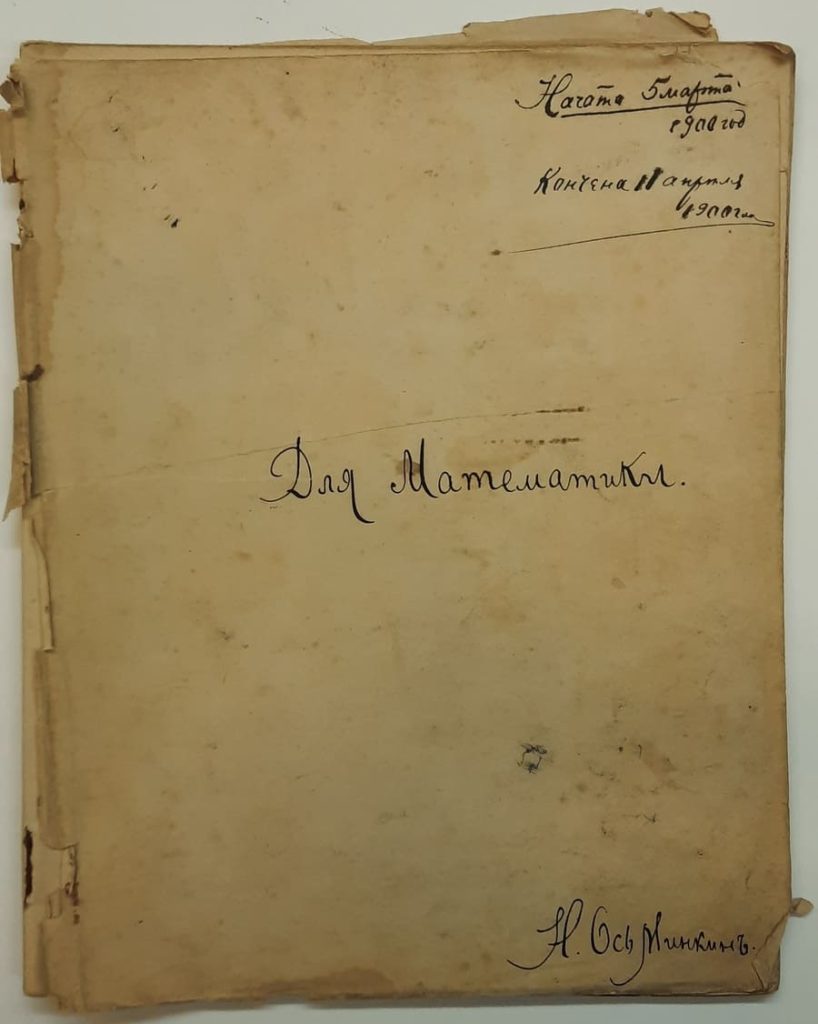 Начата 5 марта
1900 год
Кончена 11 апреля
1900 год
Для Математики.
Н. Осьминкинъ.